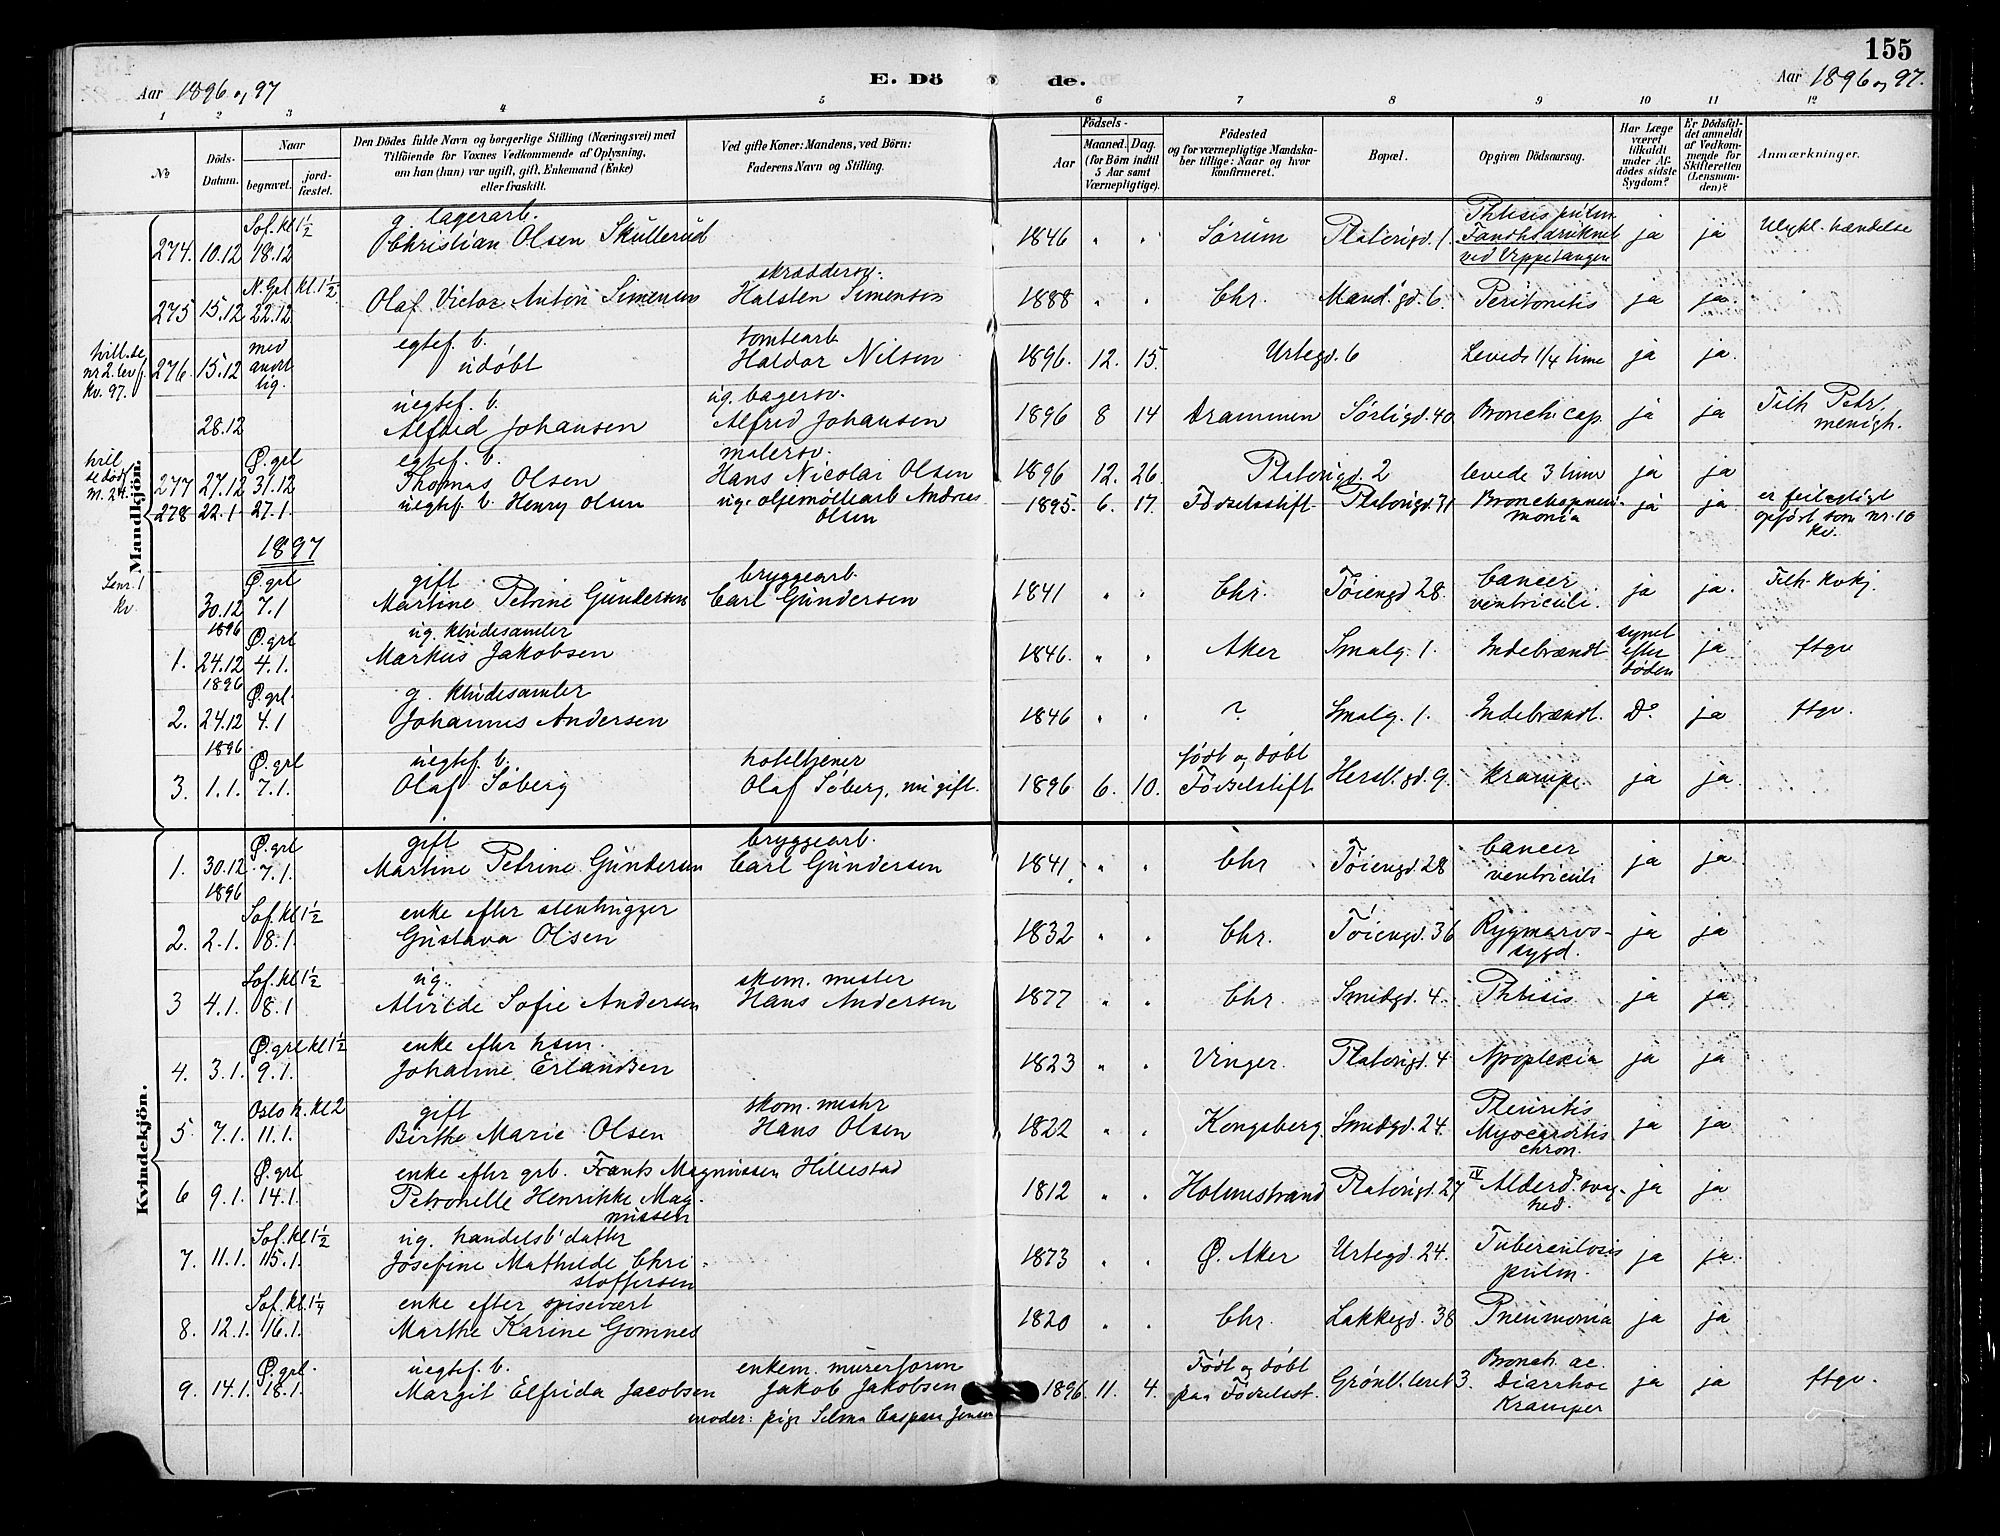 155
Aar 1896 og 97
E. Dö de.
Aar 1896 og 97.
1 2 3 4 5 6 7 8 9 10 11 12
No
Döds-Datum.
Naar
begravet.
jord-fæstet.
Den Dödes fulde Navn og borgerlige Stilling (Næringsvei) med
Tilföiende for Voxnes Vedkommende af Oplysning,
om han (hun) var ugift, gift, Enkemand (Enke)
eller fraskilt.
Ved gifte Koner: Mandens, ved Börn:
Faderens Navn og Stilling.
Födsels-
Aar
Maaned. Dag.
(for Börn indtil
5 Aar samt
Værnepligtige).
Födested
og for værnepligtige Mandska-
ber tillige: Naar og hvor
konfirmeret.
Bopæl.
Opgiven Dödsaarsag.
Har Læge
været
tilkaldt
under Af-
dödes sidste
Sygdom?
Er Dödsfal-
det anmeldt
af Vedkom-
mende for
Skifteretten
(Lensman-
den)?
Anmærkninger.
Mandkjön.
Sof. kl 1 1/2 g. lagerarb. Phtisis pulm.
274. 10.12 18.12 Christian Olsen Skullerud 1846 " " Sørum Platougd. 1. Fandtes druknet ja ja Ulykl. hændelse
ved Vippetangen
N. Grl kl. 1 1/2 skræddersv.
275 15.12 22.12 Olaf Victor Anton Simensen Halsten Simensen 1888 " " Chr. Mand. gd. 6 Peritonitis ja ja.
tvill. se
nr 2. lev f.
Kv. 97.
med egtef. b. tomtearb
276. 15.12 andt lig. udøbt Haldor Nilsen 1896. 12. 15. Urtegd. 6 Levede 1/4 time ja ja.
uegtef. b. ug. bagersv.
28.12 Alfred Johansen Alfred Johansen 1896 8 14 Drammen Sørligd. 40 Bronch. cap. ja ja Tilh. Petr. menigh.
tvil
se død
M. 24.
Ø. grl egtef. b. malersv.
277 27.12 31.12 Thomas Olsen Hans Nicolai Olsen 1896 12. 26. Platougd. 2 levede 3 timer ja ja
278 22.1 27.1. uegtef. b. Henry Olsen ug. oljemøllearb Andreas Olsen 1895. 6. 17. Fødselsstift. Platougd. 31 Bronchopneumonia ja ja. er feilagtigt
opført som nr. 10
kv.
1897
Se nr. 1
kv
Ø. grl gift bryggearb.
30.12 1896 7.1 Martine Petrine Gundersen Carl Gundersen 1841 " " Chr. Tøiengd 28. Cancer ventriculi. ja ja. Tilh. kvkj.
Ø. grl ug. kludesamler
1. 24.12 1896 4.1. Markus Jakobsen 1846. " " Aker Smalg. 1. Indebrændt synet efter døden ja ftgv
Ø. grl. g. kludesamler
2. 24.12 1896 4.1 Johannes Andersen 1846 " " ? Smalg. 1. Indebrændt. Do ja ftgv.
Ø. grl uegtef. b. hoteltjener født og døbt
3. 1.1. 7.1. Olaf Søberg Olaf Søberg, nu gift. 1896 6. 10. Fødselstift Hersl. gd. 9. Krampe. ja ja.
Kvindekjön.
Ø. grl gift bryggearb.
1. 30.12 1896 7.1. Martine Petrine Gundersen Carl Gundersen 1841. " " Chr Tøiengd 28 Cancer ventriculi ja ja.
Sof. kl 1 1/2 enke efter stenhugger
2. 2.1. 8.1. Gustava Olsen 1832 " " Chr. Tøiengd. 36 Rygmarvs-sygd. ja ja
Sof. kl 1 1/2 ug. skom. mester
3 4.1. 8.1 Alvilde Sofie Andersen Hans Andersen 1877 " " Chr. Smedgd. 4. Phtisis ja ja.
Ø. grl kl 1 1/2 enke efter hsm.
4. 3.1. 9.1. Johanne Erlandsen 1823 " " Vinger. Platougd. 4 Apoplexia ja ja
Oslo k. kl 2 gift skom. mestr
5 7.1. 11.1. Berthe Marie Olsen Hans Olsen 1822 " " Kongsberg. Smedgd. 24. Pleuritis Myocarditis chron. ja ja
Ø. grl enke efter grb. Frants Magnussen Hillestad
6 9.1. 14.1. Petronelle Henrikke Magnussen 1812 " " Holmestrand Platougd. 27 IV Alderdsvaghed. ja ja
Sof. kl 1 1/2 ug. handelsb' datter
7. 11.1. 15.1. Josefine Mathilde Christoffersen 1873 " " Ø. Aker Urtegd. 24. Tuberculosis pulm. ja ja.
Sof. kl. 1 1/4 enke efter spisevært
8. 12.1. 16.1. Marthe Karine Gomnes 1820 " " Chr. Lakkegd. 38 Pneumonia ja ja
Ø. grl. uegtef. b. enkem. murerform Født og døbt Bronch. ac.
9. 14.1. 18.1. Margit Elfrida Jacobsen Jakob Jakobsen 1896 11. 4. paa Fødselsst. Grønl. leret 3. Diarrhoe ja ja ftgv.
moder: pige Selma Caspara Jensen Kramper